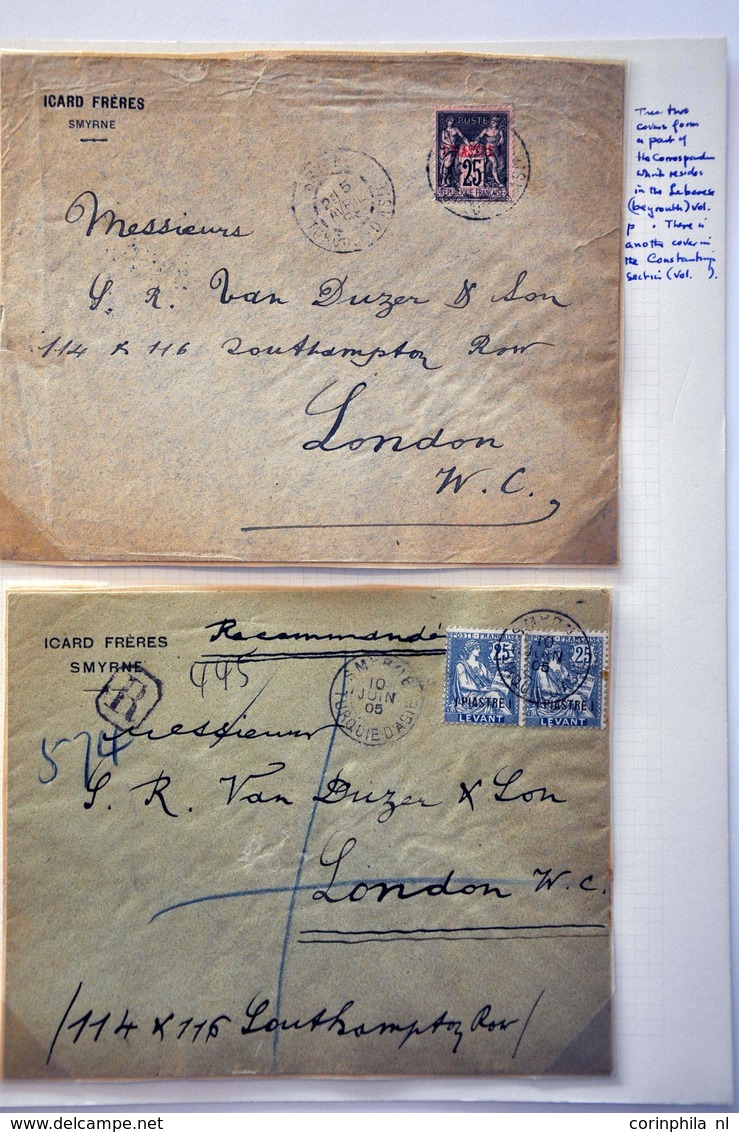 ICARD FRÈRES
SMYRNE
POSTE
25
REPUBLIQUE FRANÇAISE
AVRIL
Messieurs
S. R. Van Duzer & Son
114 & 116 Southampton Row
London
W. C.
two
covers form
a part of
the
which resides
in the Lebanese
(beyrouth) vol.
p . There is
another cover in
the
section (vol. ).
ICARD FRÈRES
SMYRNE
Recommandé
R
445
574
SMYRNE
10
JUIN
05
TURQUIE-D'ASIE
POSTE FRANÇAISE
25
1 PIASTRE 1
LEVANT
25
1 PIASTRE 1
LEVANT
SMYRNE
10
JUIN
05
Messieurs
S. R. Van Duzer & Son
London W. C.
/114 & 116 Southampton Row/
corinphila nl